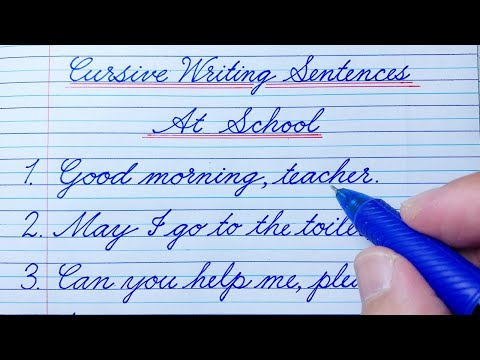 Cursive Writing Sentences
At School
1. Good morning, teacher.
2. May I go to the
3. Can you help me,